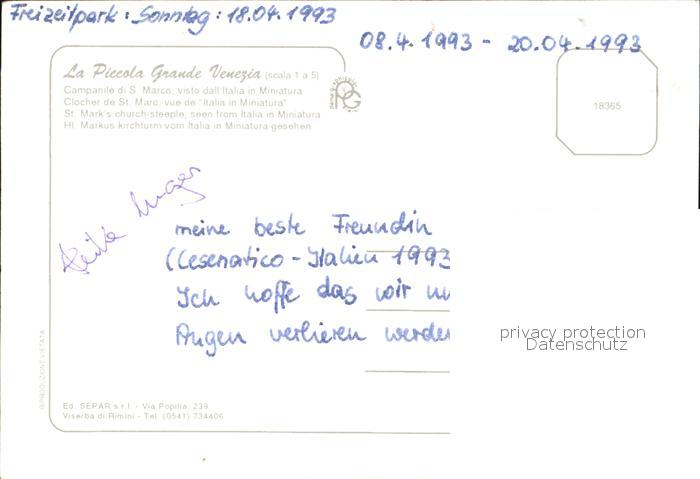 Freizeitpark: Sonntag: 18.04.1993
08.4.1993 - 20.04.1993
La Piccola Grande Venezia (scala 1 a 5)
Campanile di S. Marco, visto dall'Italia in Miniatura
Clocher de St. Marc, vue de "Italia in Miniatura"
St. Mark's church-steeple, seen from Italia in Miniatura
Hl. Markus kirchturm vom Italia in Miniatura gesehen
18365
meine beste Freundin
(Cesenatico - Italien 1993
Ich hoffe das wir
Augen verlieren werde
privacy protection
Datenschutz
RIPRODUZIONE VIETATA
Ed. SEPAR s.r.l. - Via Popilia, 239
Viserba di Rimini - Tel. (0541) 734406